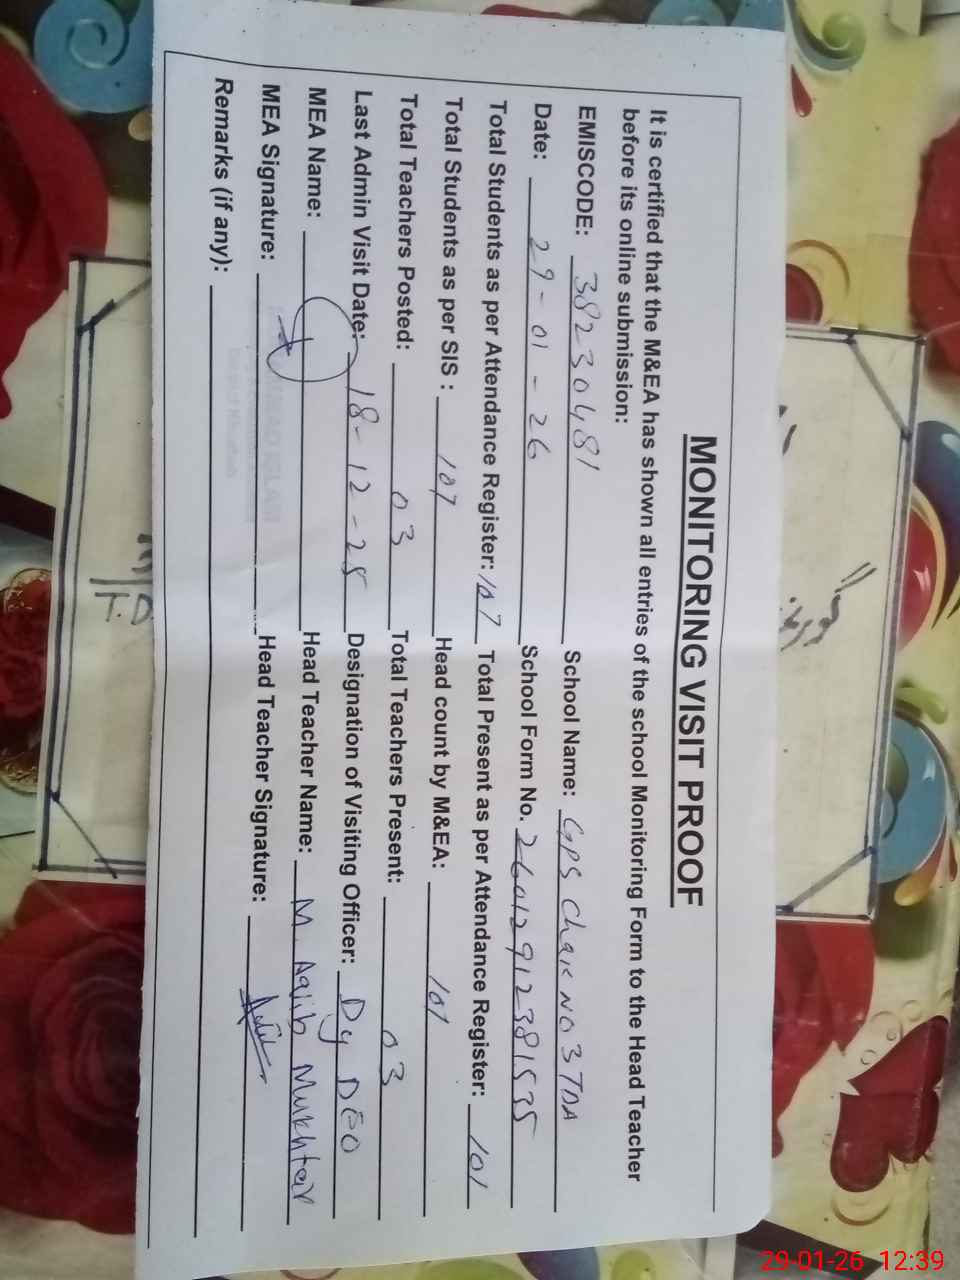 MONITORING VISIT PROOF
It is certified that the M&EA has shown all entries of the school Monitoring Form to the Head Teacher
before its online submission:
EMISCODE: 38230481 School Name: GPS Chak NO 3 TDA
Date: 29-01-26 School Form No. 26012912381535
Total Students as per Attendance Register: 107 Total Present as per Attendance Register: 101
Total Students as per SIS : 107 Head count by M&EA: 101
Total Teachers Posted: 03 Total Teachers Present: 03
Last Admin Visit Date: 18-12-25 Designation of Visiting Officer: Dy DEO
MEA Name: Head Teacher Name: M. Aqib Mukhtar
MEA Signature: Head Teacher Signature: Aqib
Remarks (if any):
29-01-26 12:39